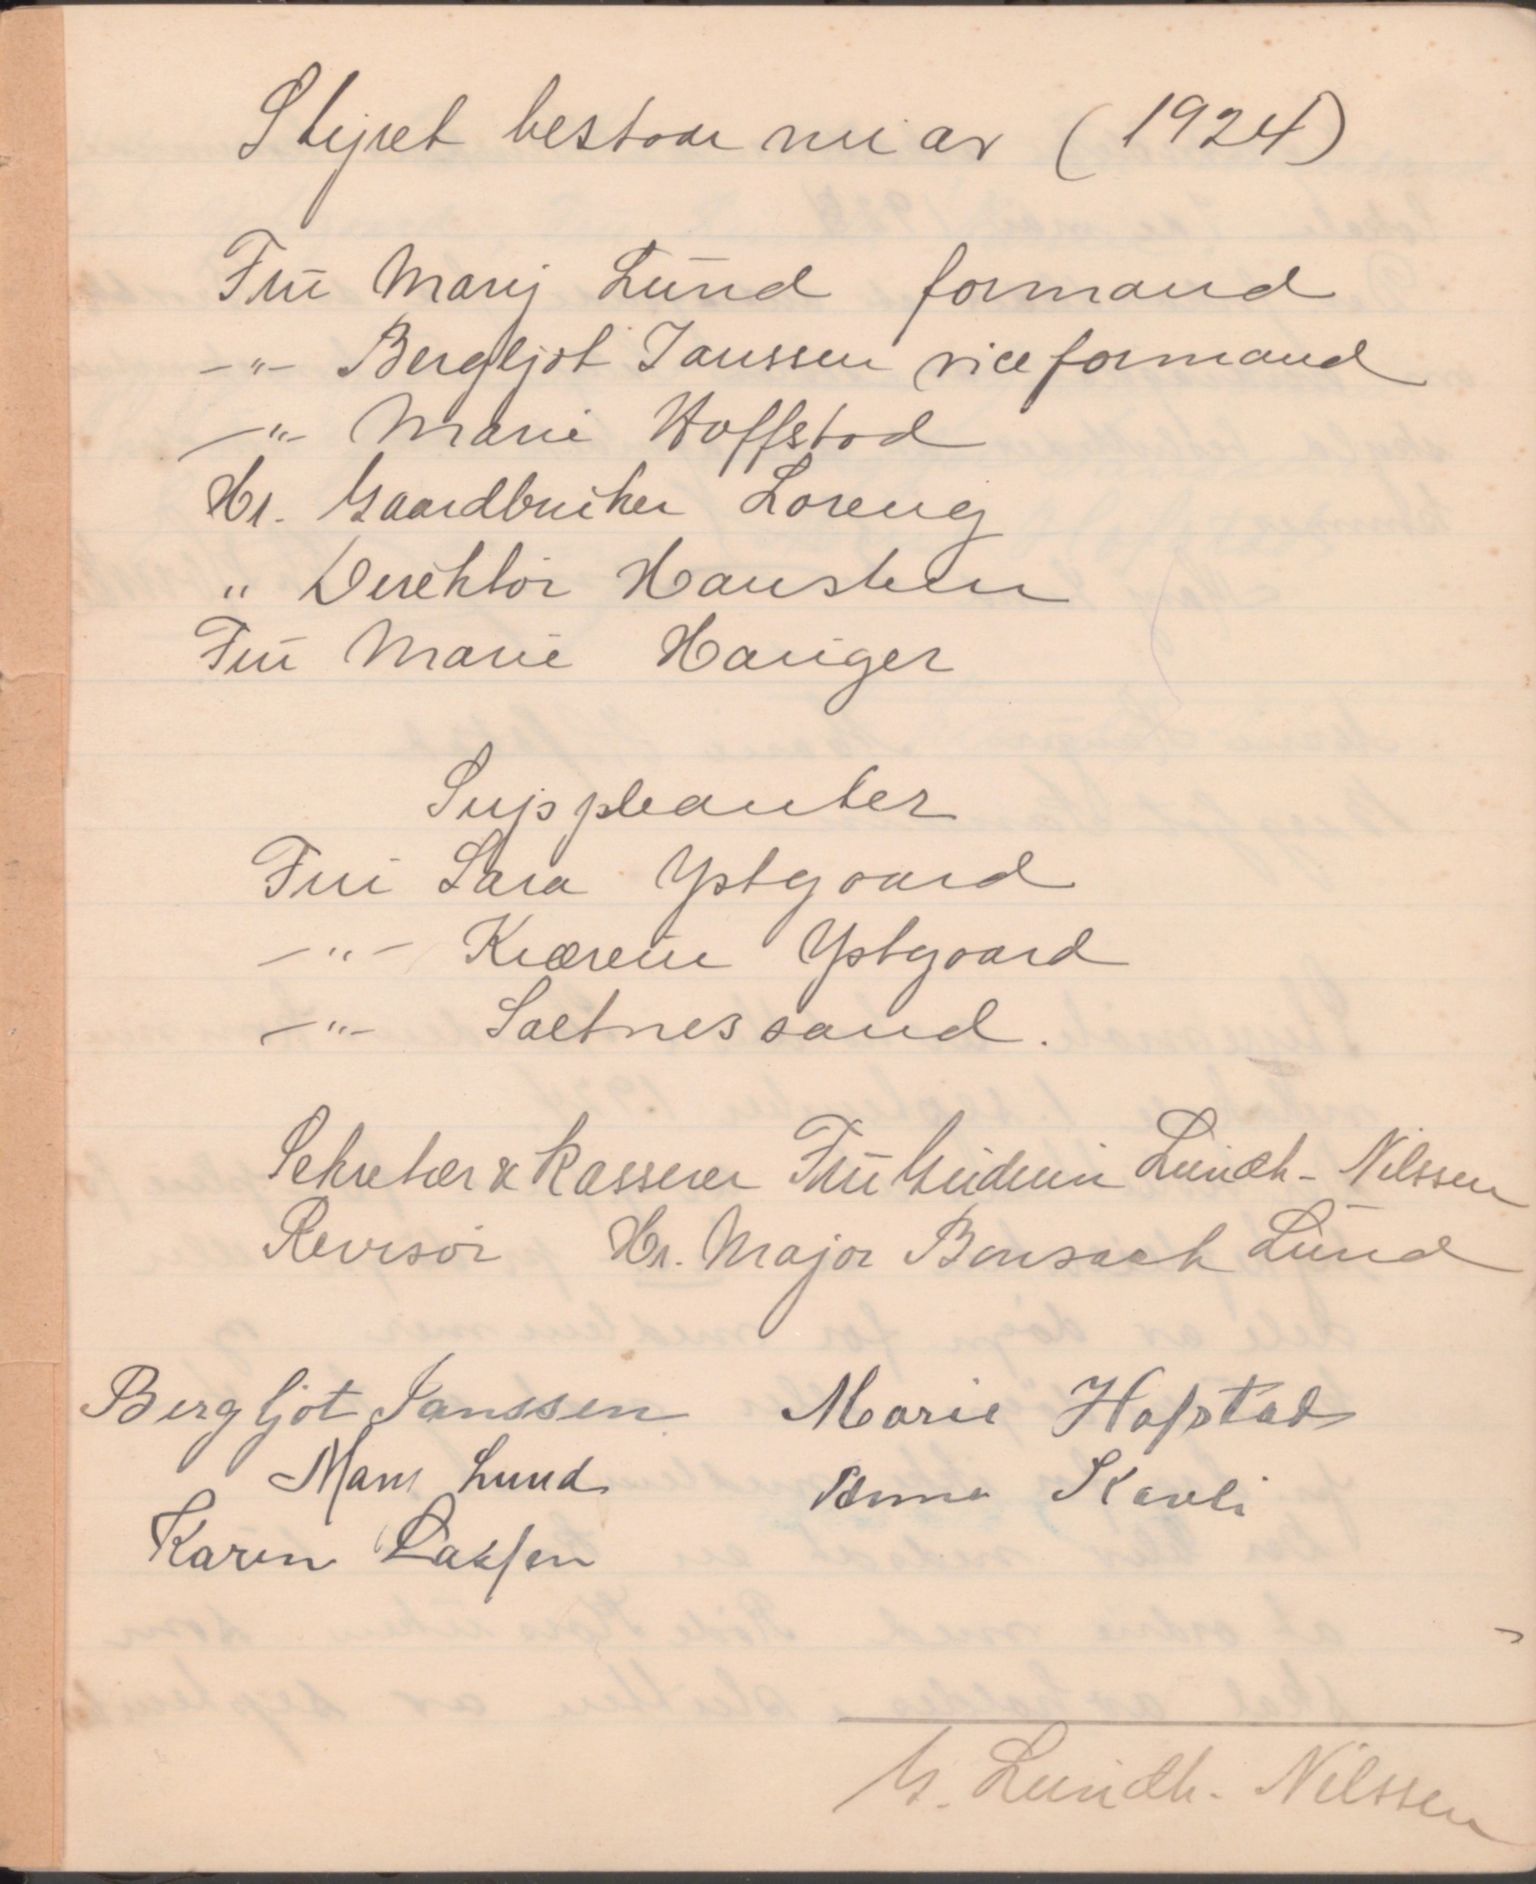 Styret bestaar nu av (1924)
Frū Marij Lūnd formand
-"- Bergljot Janssen viceformand
-"- Marie Hoffstad
Hr. Gaardbruker Loreng
" Direktör Haustein
Frū Marie Hauger
Suppleanter
Frū Sara Ystgaard
-"- Kværein Ystgaard
-"- Saltnessand.
Sekretær & kasserer Frū Gudrun Lundh-Nilssen
Revisor Hr. Major Bonsach Lūnd
Bergljot Janssen Marie Hofstad
Mary Lund Anna Kavli
Karen Laksen
G. Lundh-Nilssen